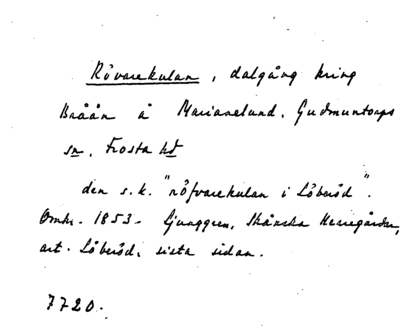 Rövarekulan, dalgång kring
Bråån å Marianelund, Gudmuntorps
sn, Frosta hd
den s.k. "röfvarekulan i Löberöd".
Omkr. 1853 - Ljunggren, Skånska Herregårdar,
art. Löberöd, sista sidan.
7720.